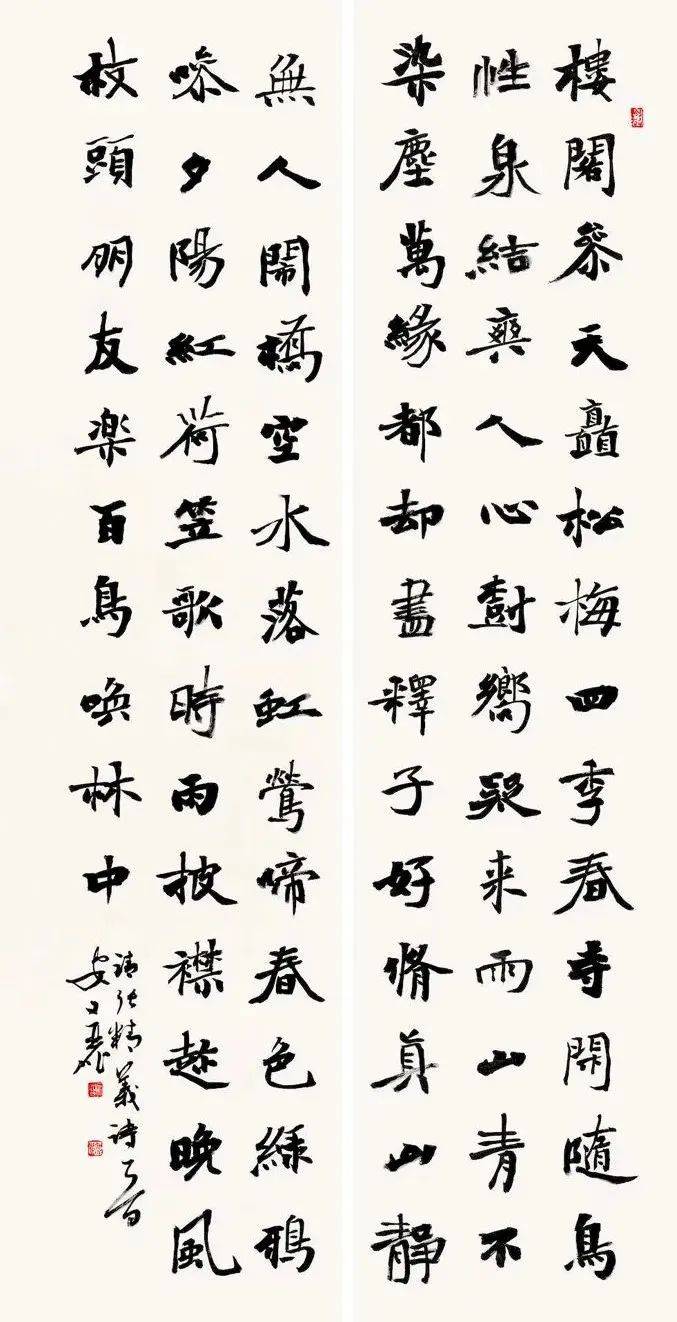 樓閣叅天矗松梅四季春寺閑隨鳥
性泉結與人心對嚮疑来雨山青不
染塵萬緣都却盡釋子好脩真山靜
無人鬧橋空水落虹鶯啼春色綠鴉
噪夕陽紅荷笠歌時雨披襟趁晚風
枝頭朋友楽百鳥喚林中
清張精義詩二首